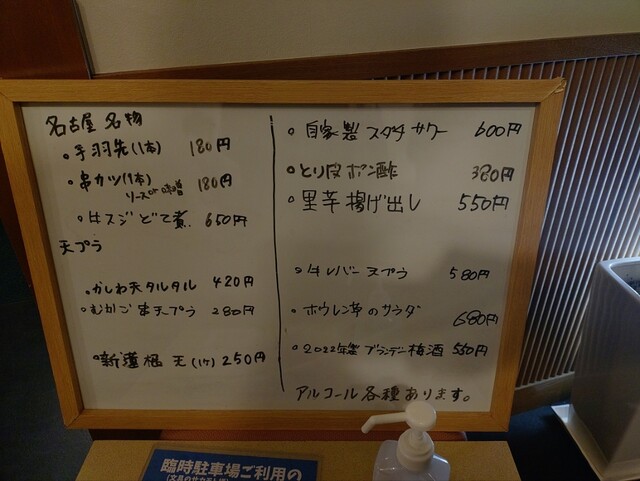 名古屋名物
・手羽先(1本) 180円
・串カツ(1本) 180円
ソースor味噌
・牛スジどて煮. 650円
天プラ
・かしわ天タルタル 420円
・むかご串天プラ 280円
・新蓮根天(1ケ) 250円
・自家製スダチサワー 600円
・とり皮ポン酢 380円
・里芋揚げ出し 550円
・牛レバースプラ 580円
・ホウレン草のサラダ 680円
・2022年製ブランデー梅酒 550円
アルコール各種あります。
臨時駐車場ご利用の